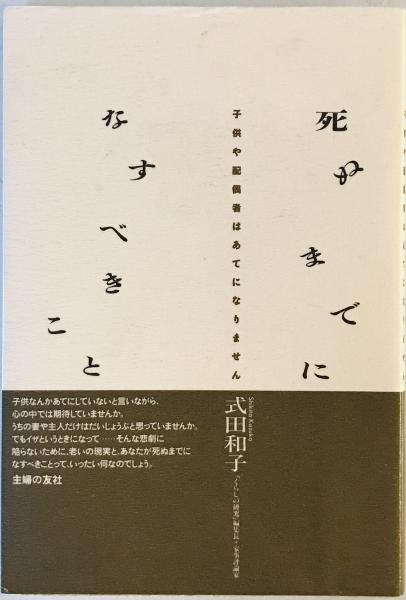 死ぬまでに
なすべきこと
子供や配偶者はあてになりません
Shikita Kazuko
式田和子
「くらしの研究」編集長・家事評論家
子供なんかあてにしていないと言いながら、
心の中では期待していませんか。
うちの妻や主人だけはだいじょうぶと思っていませんか。
でもイザというときになって……そんな悲劇に
陥らないために、老いの現実と、あなたが死ぬまでに
なすべきことって、いったい何なのでしょう。
主婦の友社